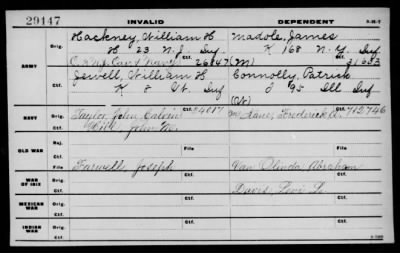 29147 INVALID DEPENDENT
Hackney, William H Madole, James
ARMY Orig. H 23 N.J. Inf K 168 N.Y. Inf
Ctf. 26847 (M) 31653
Jewell, William H Connolly, Patrick
Orig. K 8 Vt. Inf I 95 Ill Inf
Ctf.
NAVY Orig. Taylor, John Calvin 24817 McKane, Frederick 712746
Hill, John
Ctf.
OLD WAR Rej.
Ctf. File File
WAR OF 1812 Orig. Farwell, Joseph Van Olinda, Abraham
Ctf. Davis, Levi L.
MEXICAN WAR Orig.
Ctf.
INDIAN WAR Orig.
Ctf.